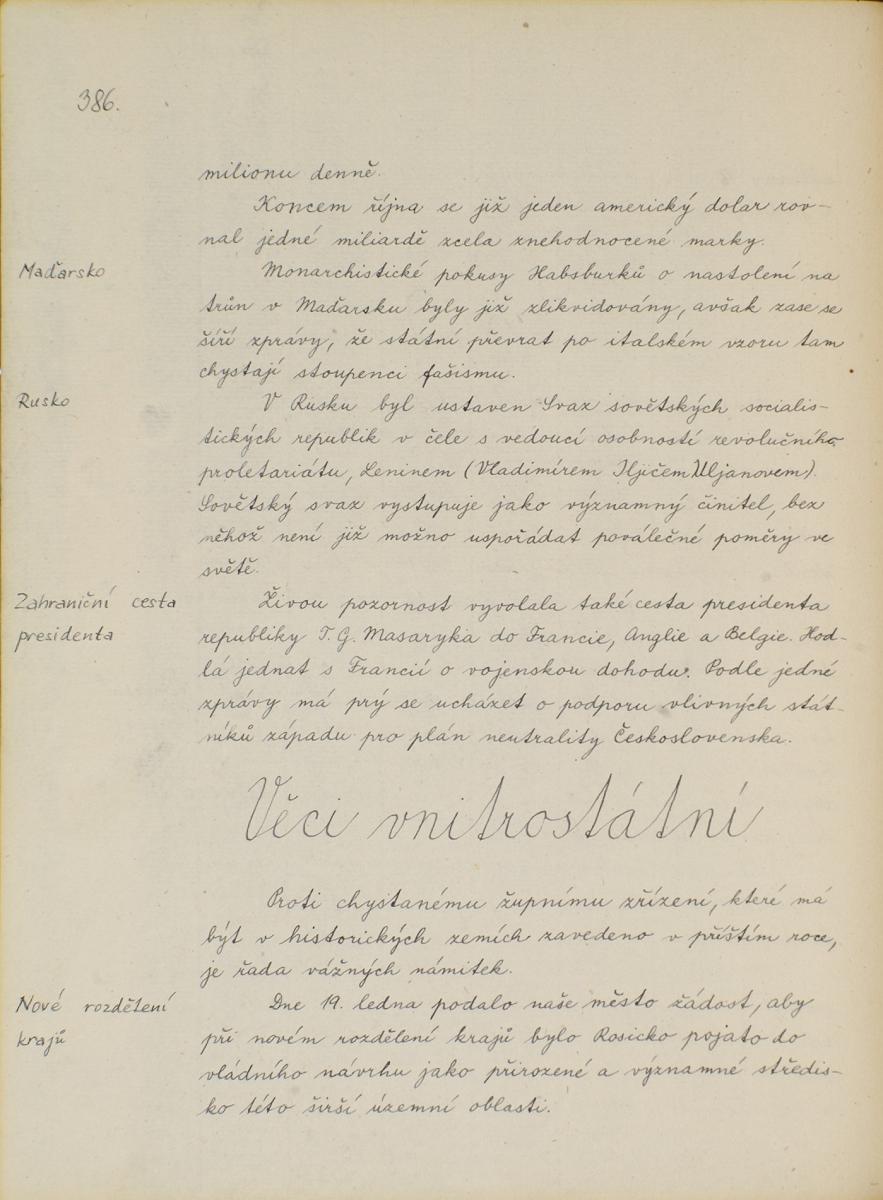 386.
milionu denně.
Koncem října se již jeden americký dolar rov-
nal jedné miliardě zcela znehodnocené marky.
Maďarsko
Monarchistické pokusy Habsburků o nastolení na
trůn v Maďarsku byly již zlikvidovány, avšak zase se
šíří zprávy, že státní převrat po italském vzoru tam
chystají stoupenci fašismu.
Rusko
V Rusku byl ustaven Svaz sovětských socialis-
tických republik v čele s vedoucí osobností revolučního
proletariátu, Leninem (Vladimírem Iljičem Uljanovem).
Sovětský svaz vystupuje jako významný činitel, bez
něhož není již možno uspořádat poválečné poměry ve
světě.
Zahraniční cesta
presidenta
Živou pozornost vyvolala také cesta presidenta
republiky T. G. Masaryka do Francie, Anglie a Belgie. Hod-
lá jednat s Francií o vojenskou dohodu. Podle jedné
zprávy má prý se ucházet o podporu vlivných stát-
níků západu pro plán neutrality Československa.
Věci vnitrostátní
Proti chystanému župnímu zřízení, které má
být v historických zemích zavedeno v příštím roce,
je řada vážných námitek.
Nové rozdělení
krajů
Dne 19. ledna podalo naše město žádost, aby
při novém rozdělení krajů bylo Rosicko pojato do
vládního návrhu jako přirozené a významné středis-
ko této širší územní oblasti.